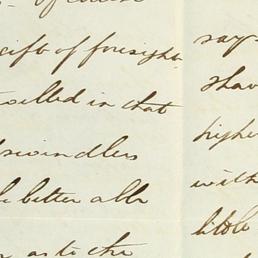 of course
gift of foresight
in that
swindlers
better all
as to the
says
I have
higher
with
little